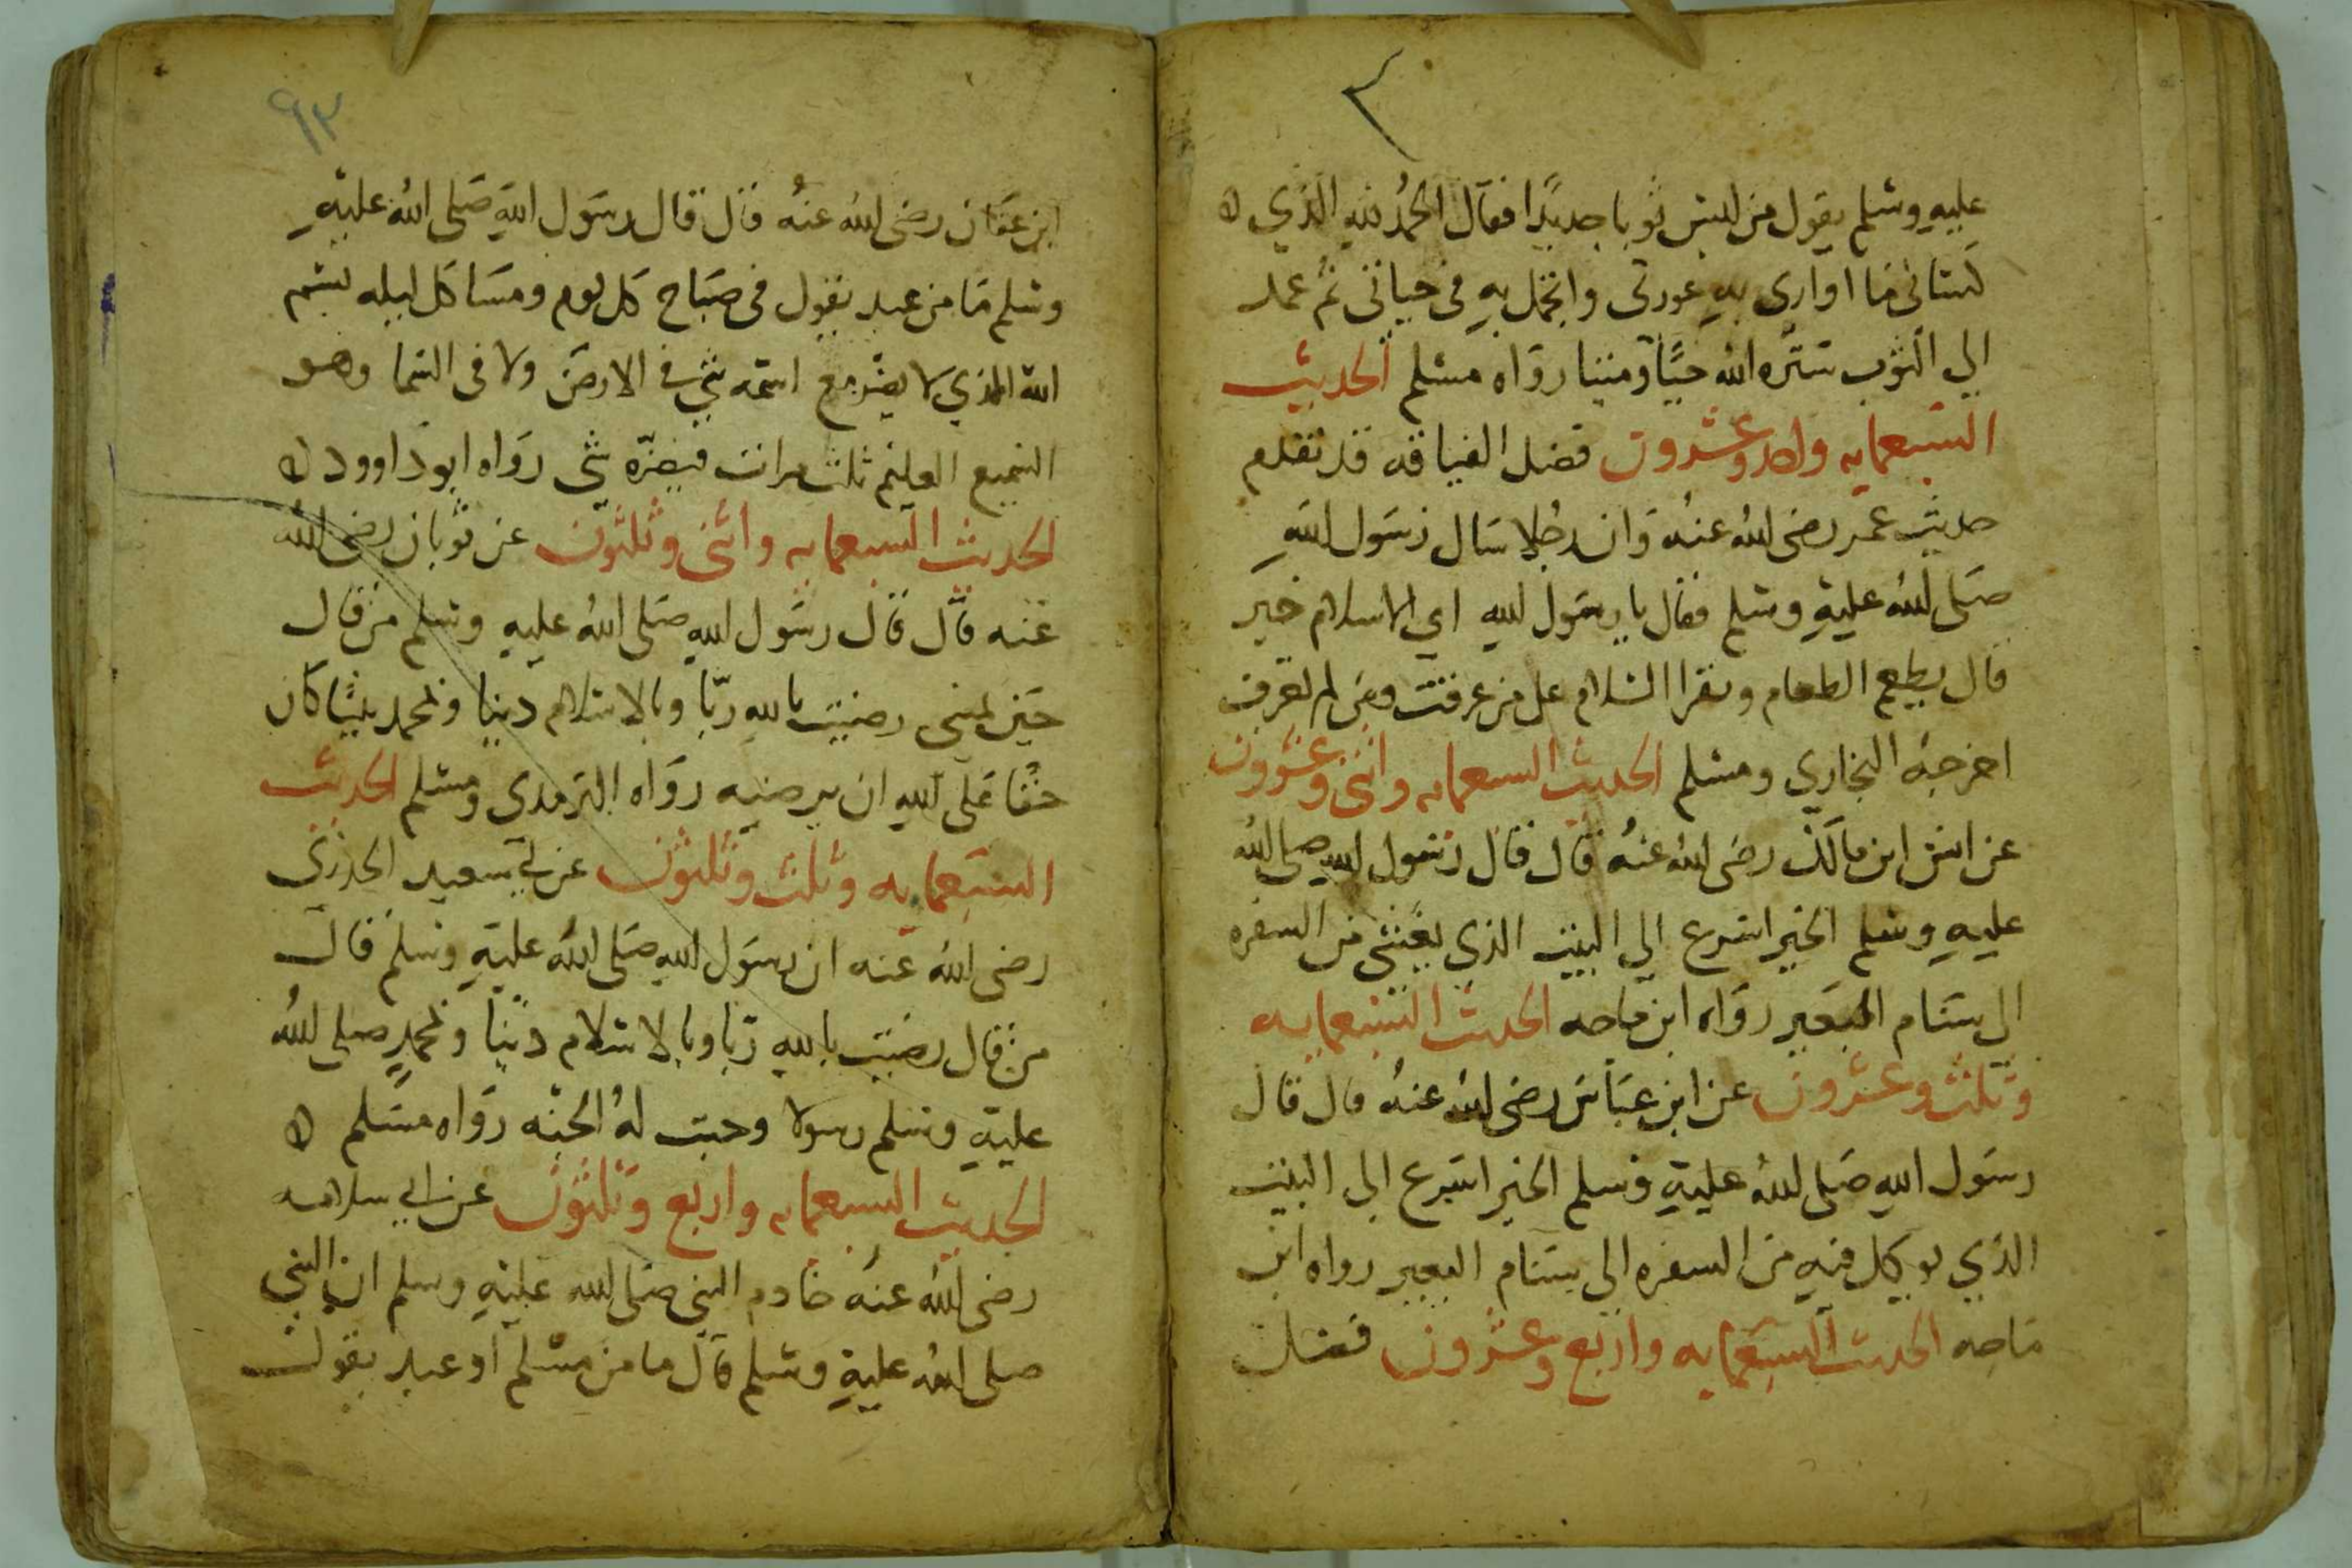 عليه وسلم يقول من لبس ثوبا جديدا فقال الحمد لله الذي
كساني ما اواري به عورتي واتجمل به في حياتي ثم عمد
الي الثوب ستره الله حيا وميتا رواه مسلم الحديث
السبعمايه واحد وعشرون فضل الضيافه قد تقدم
حديث عمر رضى الله عنه وان رجلا سال رسول الله
صلى الله عليه وسلم فقال يا رسول الله اي الاسلام خير
قال يطعم الطعام وتقرا السلام على من عرفت ومن لم تعرف
اخرجه البخاري ومسلم الحديث السبعمايه واثنى وعشرون
عن انس ابن مالك رضى الله عنه قال قال رسول الله صلى الله
عليه وسلم الخير اسرع الي البيت الذي يغشى من السفره
الى سنام البعير رواه ابن ماجه الحديث السبعمايه
وثلث وعشرون عن ابن عباس رضى الله عنه قال قال
رسول الله صلى الله عليه وسلم الخير اسرع الى البيت
الذي يوكل فيه من السفره الى سنام البعير رواه ابن
ماجه الحديث السبعمايه واربع وعشرون فضل
٩٣
ابن عفان رضى الله عنه قال قال رسول الله صلى الله عليه
وسلم ما من عبد يقول في صباح كل يوم ومسا كل ليله بسم
الله الذي لا يضر مع اسمه شي في الارض ولا في السما وهو
السميع العليم ثلث مرات فيضره شي رواه ابو داوود
الحديث السبعمايه واثنى وثلثون عن ثوبان رضى الله
عنه قال قال رسول الله صلى الله عليه وسلم من قال
حين يمسي رضيت بالله ربا وبالاسلام دينا وبمحمد نبيا كان
حقا على الله ان يرضيه رواه الترمدي ومسلم الحديث
السبعمايه وثلث وثلثون عن ابي سعيد الخدري
رضى الله عنه ان رسول الله صلى الله عليه وسلم قال
من قال رضيت بالله ربا وبالاسلام دينا وبمحمد صلى الله
عليه وسلم رسولا وجبت له الجنه رواه مسلم
الحديث السبعمايه واربع وثلثون عن ابي سلامه
رضى الله عنه خادم النبي صلى الله عليه وسلم ان النبي
صلى الله عليه وسلم قال ما من مسلم او عبد يقول